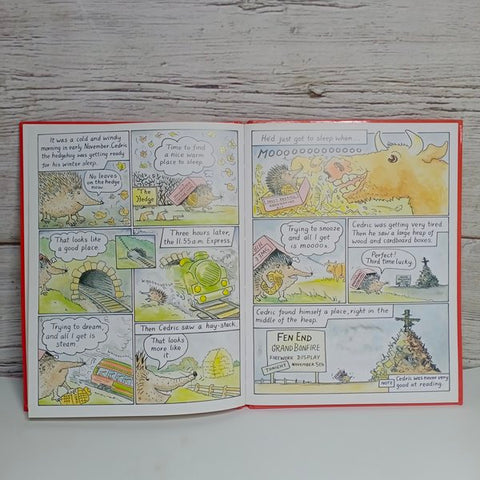 It was a cold and windy
morning in early November. Cedric
the hedgehog was getting ready
for his winter sleep.
No leaves
on the hedge
now.
Time to find
a nice warm
place to sleep.
The
Hedge
That looks like
a good place.
Three hours later,
the 11.55 a.m. Express.
Trying to dream,
and all I get is
steam
Then Cedric saw a hay-stack.
That looks
more like
it.
He'd just got to sleep when...
MOOOOOOOOOOOOO
Trying to snooze
and all I get
is moooos.
Cedric was getting very tired
Then he saw a large heap of
wood and cardboard boxes.
Perfect!
Third time lucky.
Cedric found himself a place, right in the
middle of the heap.
FEN END
GRAND BONFIRE
FIREWORK DISPLAY
TONIGHT NOVEMBER 5TH
NOTE Cedric was never very
good at reading.